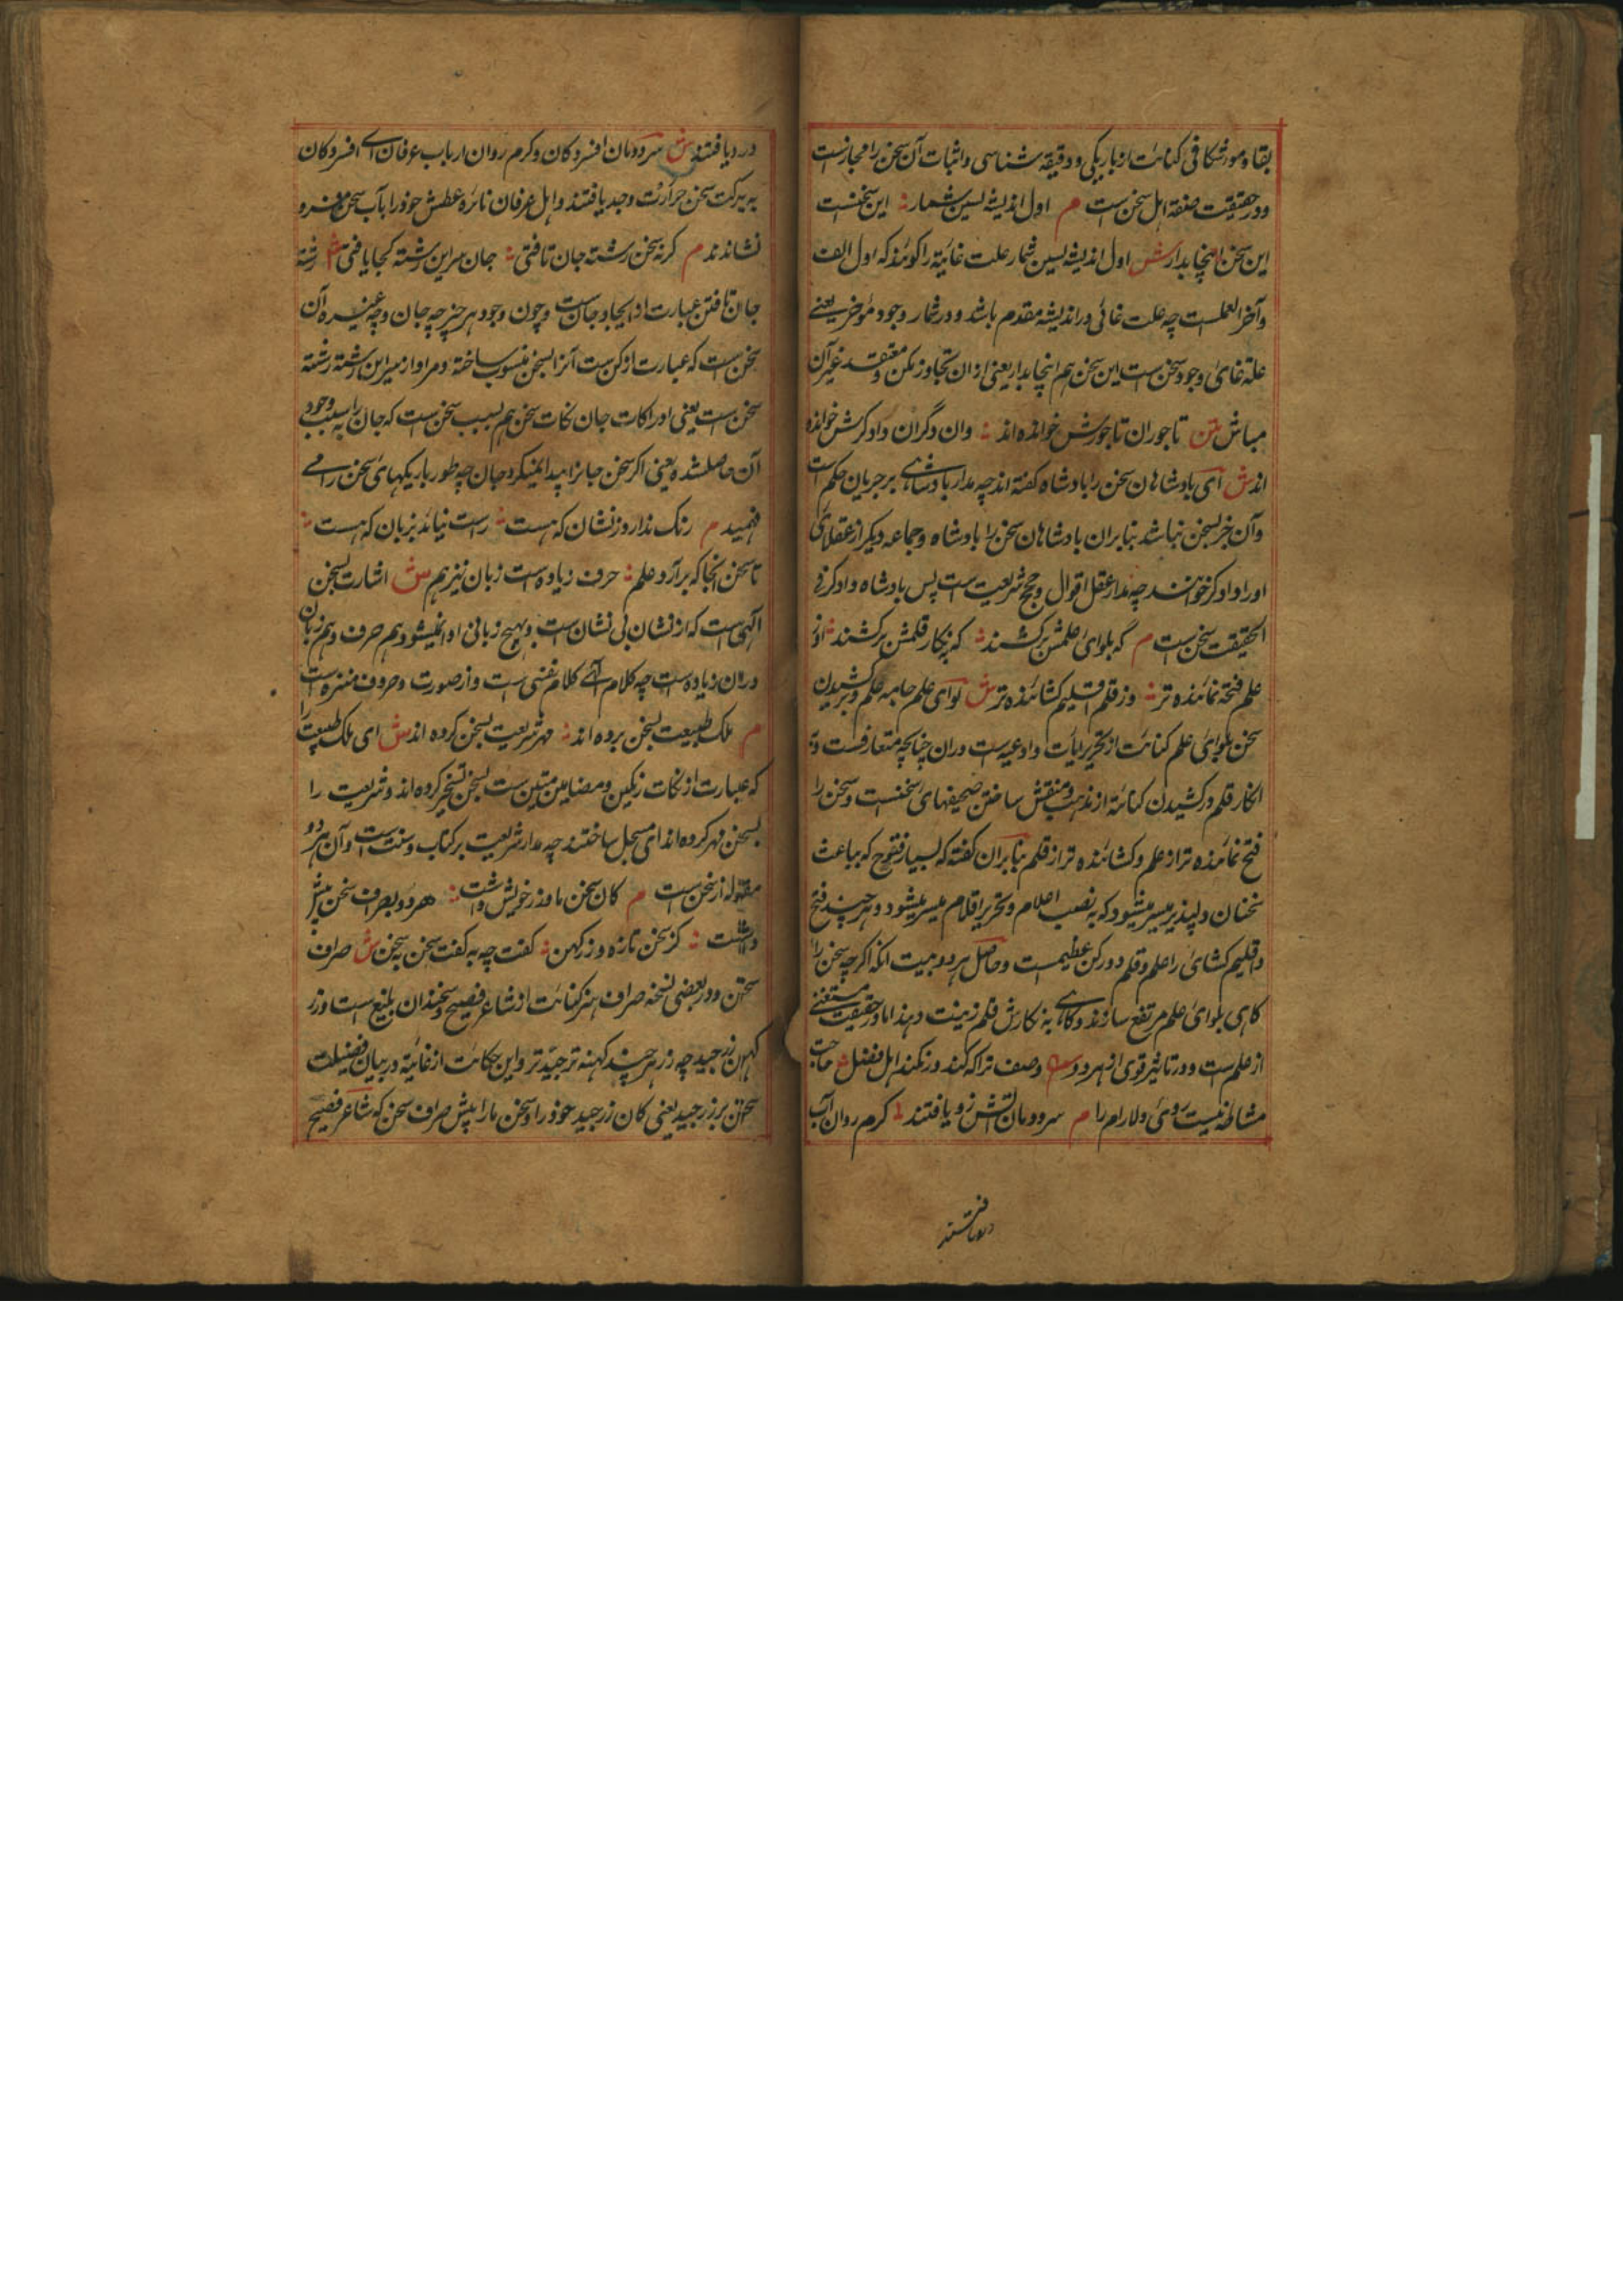 بقا و موشکافی کنایت از باریکی و دقیقه شناسی و اثبات آن سخن را مجازست
و در حقیقت صفة اهل سخن است م اول اندیشه پسین شمار ؞ این سخنست
این سخن اینجا بدار ش اول اندیشه پسین شمار علت غائیة را گویند که اول الفکر
و آخر العملست چه علت غائی در اندیشه مقدم باشد و در شمار وجود مؤخر یعنے
علة غائ وجود سخن است این سخن هم اینجا بدار یعنی از ان تجاوز مکن و معتقد غیر آن
مباش متن تاجوران تاجورش خوانده اند ؞ وان دگران دادگرش خوانده
اند ش ای بادشاهان سخن را بادشاه گفته اند چه مدار بادشاهے بر جریان حکم است
و آن جز بسخن نباشد بنابران بادشاهان سخن را بادشاه و جماعه دیگر از عقلای
اورا دادگر خوانند چه مدار عقل اقوال و حجج شریعت است پس بادشاه و دادگر فی
الحقیقت سخن است م گه بلوای علمش برکشند ؞ گه بنکار قلمش برکشند ؞ او ز
علم فتحه نماینده تر ؞ وز قلم اقلیم کشاینده تر ش لوای علم جامه علم و برکشیدن
سخن بلوای علم کنایت از تحریر ایات و ادعیه است دران چنانچه متعارفست و ب
انکار قلم درکشیدن کنایة از تذهیب و منقش ساختن صحیفهای سخنست و سخن را
فتح نماینده تر از علم و کشاینده تر از قلم بنابران گفته که بسیار فتوح که بباعث
سخنان دلپذیر میسر میشود که به نصب اعلام و تحریر اقلام میسر میشود و هرچند فتح
و اقلیم کشای را علم و قلم دو رکن عظیمست و حاصل هر دو بیت انکه اگرچه سخن را
گاهی بلوای علم مرتفع سازند و گاهے به نگارش قلم زینت دهند اما در حقیقت مستغنے
از علم است و در تاثیر قوی از هر دو وصف ترا که کند ور نکند اهل فضل ؞ حاجت
مشاطه نیست روی دلارام را م سردومان تشش زو یافتند ؞ گرم روان آب
دریافتند
در دیافتند ش سرددمان افسردگان و گرم روان ارباب عرفان اے افسردگان
به برکت سخن حرارت وجد یافتند و اهل عرفان نائره عطش خود را بآب سخن فرو
نشاندند م گر نه سخن رشته جان تافتی ؞ جان سر این رشته کجا یافتی ش رشته
جان تافتن عبارت از ایجاد جان است و چون وجود هر چیز چه جان و چه غیره آن
سخن است که عبارت از کن ست آنرا بسخن منسوب ساخته و مراد از سر این رشته رشته
سخن است یعنی ادراکات جان نکات سخن هم بسبب سخن است که جان را بسبب وجود
آن حاصلشده یعنی اگر سخن جانرا پیدا نمیکرد جان چه طور باریکیهای سخن را مے
فهمید م رنک ندارد ز نشان که هست ؞ راست نیاید بزبان که هست ؞
تا سخن آنجا که برآرد علم ؞ حرف زیاده است زبان نیز هم ش اشارت بسخن
الهی است که از نشان بی نشان است و بهیچ زبانی ادا نمیشود هم حرف و هم زبان
دران زیاده است چه کلام آے کلام نفسی است و از صورت و حروف منزه است
م ملک طبیعت بسخن برده اند ؞ مهر شریعت بسخن کرده اند ش ای ملک طبیعت را
که عبارت از نکات رنکین و مضامین متین ست بسخن تسخیر کرده اند و شریعت را
بسخن مهر کرده اند ای مسجل ساختند چه مدار شریعت بر کتاب و سنت است و آن هر دو
مقوله از سخن است م کان سخن ما و زر خویش داشت ؞ هر دو بصراف سخن پیش
داشت ؞ کز سخن تازه و زر کهن ؞ گفت چه به گفت سخن به سخن ش صراف
سخن و در بعضی نسخه صراف هنر کنایت از شاعر فصیح و سخندان بلیغ است و زر
کهن زر جید چه زر هر چند کهنه تر جیّد تر و این حکایت از غائیة در بیان فضیلت
سخن بر زر جید یعنی کان زر جید خود را و سخن ما را پیش صراف سخن که شاعر فصیح